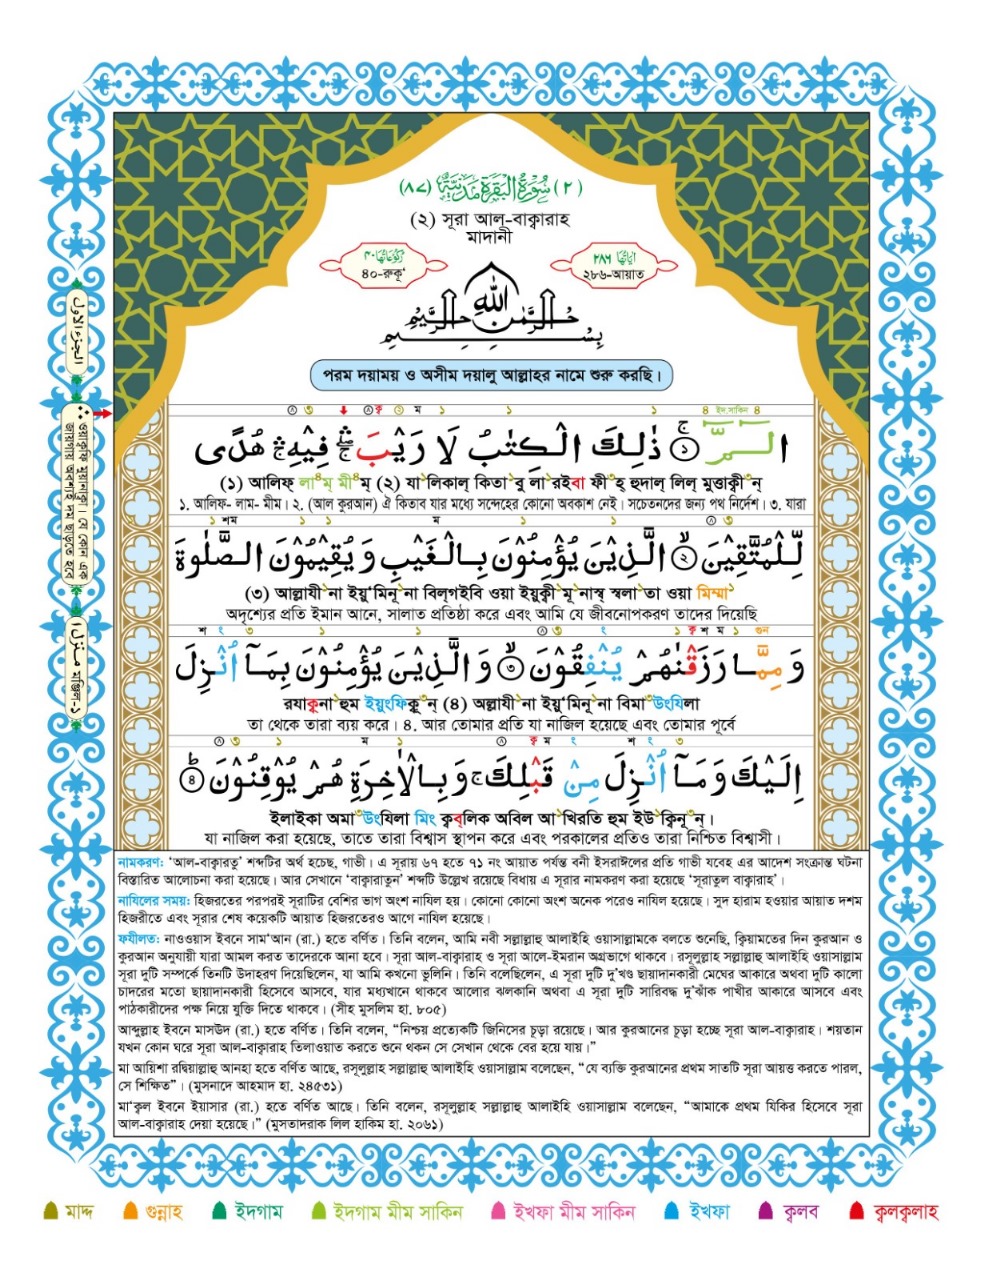 (٢) سُوْرَةُ الْبَقَرَةِ مَدَنِيَّةٌ (٨٧)
(২) সূরা আল্-বাক্বারাহ
মাদানী
رُكُوْعَاتُهَا ٤٠
৪০-রুকূ‘
اٰيَاتُهَا ٢٨٦
২৮৬-আয়াত
بِسْمِ اللهِ الرَّحْمٰنِ الرَّحِيْمِ
পরম দয়াময় ও অসীম দয়ালু আল্লাহর নামে শুরু করছি।
الٓمّٓ ۚ﴿١﴾ ذٰلِكَ الْكِتٰبُ لَا رَيْبَ ۛۖ فِيْهِ ۛۚ هُدًى
(১) আলিফ্ লা৪ম্ মী৪ম্ (২) যা১লিকাল্ কিতা১বু লা১রইবা ফী১হ্ হুদাল্ লিল্ মুত্তাক্বী৩ন্
১. আলিফ- লাম- মীম। ২. (আল কুরআন) ঐ কিতাব যার মধ্যে সন্দেহের কোনো অবকাশ নেই। সচেতনদের জন্য পথ নির্দেশ। ৩. যারা
لِّلْمُتَّقِيْنَ ۙ﴿٢﴾ الَّذِيْنَ يُؤْمِنُوْنَ بِالْغَيْبِ وَيُقِيْمُوْنَ الصَّلٰوةَ
(৩) আল্লাযী১না ইয়ু’মিনূ১না বিল্‌গইবি ওয়া ইয়ুক্বী১মূ১নাস্ব্ স্বলা১তা ওয়া মিম্মা১
অদৃশ্যের প্রতি ইমান আনে, সালাত প্রতিষ্ঠা করে এবং আমি যে জীবনোপকরণ তাদের দিয়েছি
وَمِمَّا رَزَقْنٰهُمْ يُنْفِقُوْنَ ۙ﴿٣﴾ وَالَّذِيْنَ يُؤْمِنُوْنَ بِمَآ اُنْزِلَ
রযাক্বনা১হুম ইয়ুংফিক্বূ৩ন্ (৪) অল্লাযী১না ইয়ু’মিনূ১না বিমা৩উংযিলা
তা থেকে তারা ব্যয় করে। ৪. আর তোমার প্রতি যা নাজিল হয়েছে এবং তোমার পূর্বে
اِلَيْكَ وَمَآ اُنْزِلَ مِنْ قَبْلِكَ ۚ وَبِالْاٰخِرَةِ هُمْ يُوْقِنُوْنَ ﴿٤﴾ؕ
ইলাইকা অমা৩উংযিলা মিং ক্ববলিক অবিল আ১খিরতি হুম ইউ১ক্বিনূ৩ন্।
যা নাজিল করা হয়েছে, তাতে তারা বিশ্বাস স্থাপন করে এবং পরকালের প্রতিও তারা নিশ্চিত বিশ্বাসী।
নামকরণ: ‘আল-বাক্বারতু’ শব্দটির অর্থ হচেছ, গাভী। এ সূরায় ৬৭ হতে ৭১ নং আয়াত পর্যন্ত বনী ইসরাঈলের প্রতি গাভী যবেহ্ এর আদেশ সংক্রান্ত ঘটনা
বিস্তারিত আলোচনা করা হয়েছে। আর সেখানে ‘বাক্বারাতুন’ শব্দটি উল্লেখ রয়েছে বিধায় এ সূরার নামকরণ করা হয়েছে ‘সূরাতুল বাক্বারাহ’।
নাযিলের সময়: হিজরতের পরপরই সূরাটির বেশির ভাগ অংশ নাযিল হয়। কোনো কোনো অংশ অনেক পরেও নাযিল হয়েছে। সুদ হারাম হওয়ার আয়াত দশম
হিজরীতে এবং সূরার শেষ কয়েকটি আয়াত হিজরতেরও আগে নাযিল হয়েছে।
ফযীলত: নাওওয়াস ইবনে সাম‘আন (রা.) হতে বর্ণিত। তিনি বলেন, আমি নবী সল্লাল্লাহু আলাইহি ওয়াসাল্লামকে বলতে শুনেছি, ক্বিয়ামতের দিন কুরআন ও
কুরআন অনুযায়ী যারা আমল করত তাদেরকে আনা হবে। সূরা আল-বাক্বারাহ ও সূরা আলে-ইমরান অগ্রভাগে থাকবে। রসূলুল্লাহ সল্লাল্লাহু আলাইহি ওয়াসাল্লাম
সূরা দুটি সম্পর্কে তিনটি উদাহরণ দিয়েছিলেন, যা আমি কখনো ভুলিনি। তিনি বলেছিলেন, এ সূরা দুটি দু’খণ্ড ছায়াদানকারী মেঘের আকারে অথবা দুটি কালো
চাদরের মতো ছায়াদানকারী হিসেবে আসবে, যার মধ্যখানে থাকবে আলোর ঝলকানি অথবা এ সূরা দুটি সারিবদ্ধ দু’ঝাঁক পাখীর আকারে আসবে এবং
পাঠকারীদের পক্ষ নিয়ে যুক্তি দিতে থাকবে। (সীহ মুসলিম হা. ৮০৫)
আব্দুল্লাহ ইবনে মাসঊদ (রা.) হতে বর্ণিত। তিনি বলেন, “নিশ্চয় প্রত্যেকটি জিনিসের চূড়া রয়েছে। আর কুরআনের চূড়া হচ্ছে সূরা আল-বাক্বারাহ। শয়তান
যখন কোন ঘরে সূরা আল-বাক্বারাহ তিলাওয়াত করতে শুনে থকন সে সেখান থেকে বের হয়ে যায়।”
মা আয়িশা রদ্বিয়াল্লাহু আনহা হতে বর্ণিত আছে, রসূলুল্লাহ সল্লাল্লাহু আলাইহি ওয়াসাল্লাম বলেছেন, “যে ব্যক্তি কুরআনের প্রথম সাতটি সূরা আয়ত্ত করতে পারল,
সে শিক্ষিত”। (মুসনাদে আহমাদ হা. ২৪৫৩১)
মা‘ক্বল ইবনে ইয়াসার (রা.) হতে বর্ণিত আছে। তিনি বলেন, রসূলুল্লাহ সল্লাল্লাহু আলাইহি ওয়াসাল্লাম বলেছেন, “আমাকে প্রথম যিকির হিসেবে সূরা
আল-বাক্বারাহ দেয়া হয়েছে।” (মুসতাদরাক লিল হাকিম হা. ২০৬১)
الجزء الاول
ওয়াক্বফি মুয়ানাক্বা। যে কোন এক
জায়গায় অবশ্যই দম ছাড়তে হবে
منزل ١ মঞ্জিল-১
মাদ্দ গুন্নাহ ইদগাম ইদগাম মীম সাকিন ইখফা মীম সাকিন ইখফা ক্বলব ক্বলক্বলাহ